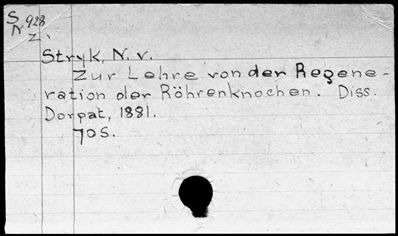 S 928
N z.
Stryk, N. v.
Zur Lehre von der Regene-
ration der Röhrenknochen. Diss.
Dorpat, 1881.
70 S.